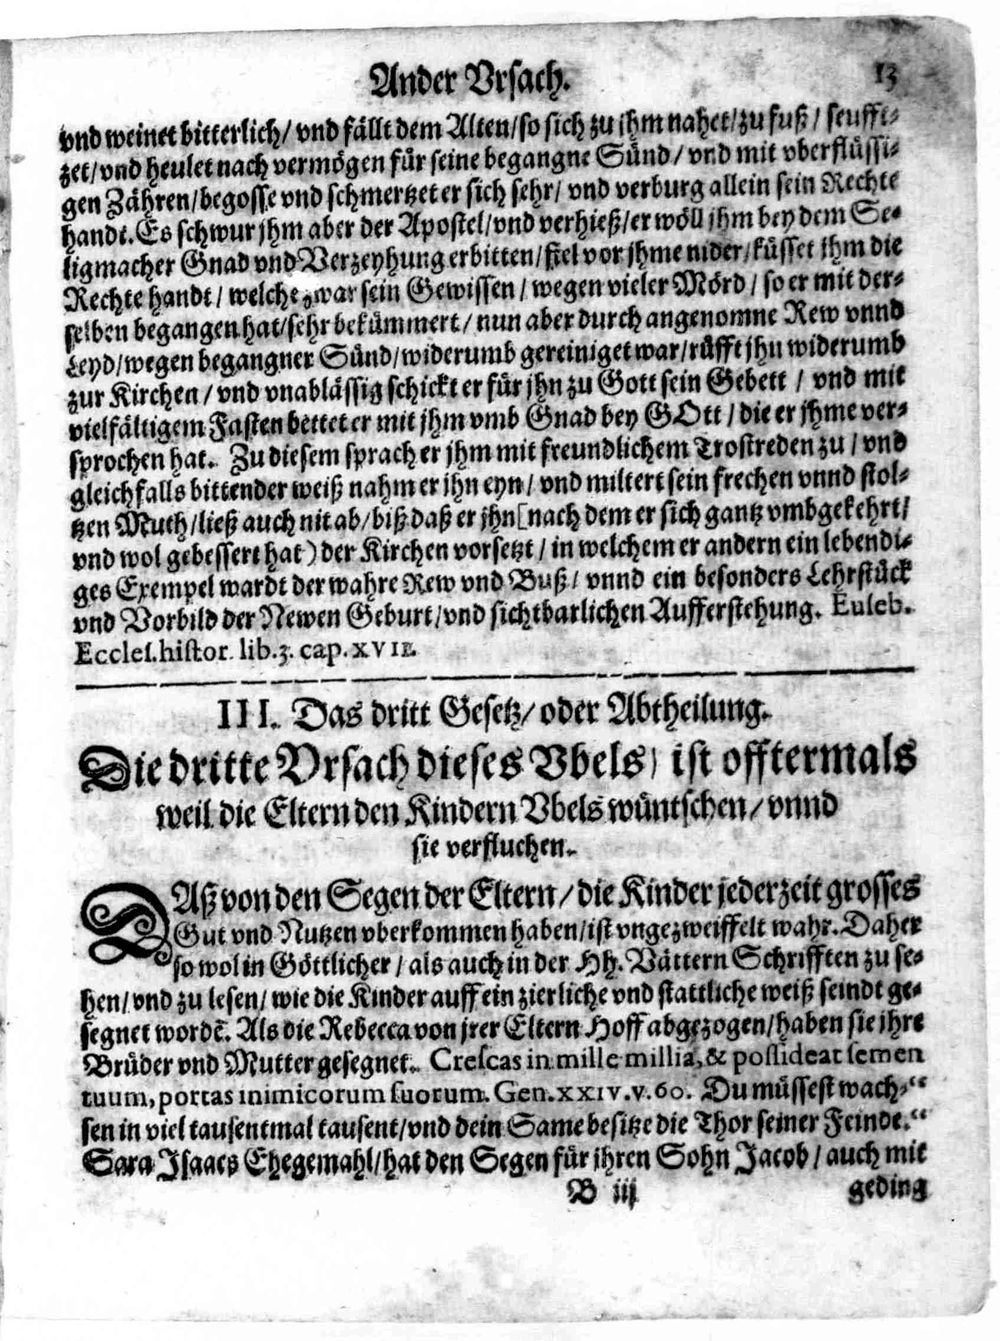 Ander Vrsach. 13
vnd weinet bitterlich/ vnd fällt dem Alten/so sich zu jhm nahet/zu fuß/ seuffi-
zet/vnd heulet nach vermögen für seine begangne Sünd/ vnd mit vberflüssi-
gen Zähren/begosse vnd schmertzet er sich sehr/ vnd verburg allein sein Rechte
handt. Es schwur jhm aber der Apostel/vnd verhieß/er wöll jhm bey dem Se-
ligmacher Gnad vnd Verzeyhung erbitten/fiel vor jhme nider/küsset jhm die
Rechte handt/ welche zwar sein Gewissen/ wegen vieler Mörd/ so er mit der-
selben begangen hat/sehr bekümmert/ nun aber durch angenomne Rew vnnd
Leyd/wegen begangner Sünd/widerumb gereiniget war/rüfft jhn widerumb
zur Kirchen/ vnd vnablässig schickt er für jhn zu Gott sein Gebett/ vnd mit
vielfältigem Fasten bettet er mit jhm vmb Gnad bey GOtt/ die er jhme ver-
sprochen hat. Zu diesem sprach er jhm mit freundlichem Trostreden zu/ vnd
gleichfalls bittender weiß nahm er jhn eyn/ vnd miltert sein frechen vnnd stol-
tzen Muth/ließ auch nit ab/biß daß er jhn[nach dem er sich gantz vmbgekehrt/
vnd wol gebessert hat) der Kirchen vorsetzt/ in welchem er andern ein lebendi-
ges Exempel wardt der wahre Rew vnd Buß/ vnnd ein besonders Lehrstück
vnd Vorbild der Newen Geburt/vnd sichtbarlichen Aufferstehung. Euseb.
Eccles. histor. lib. 3. cap. XVII.
III. Das dritt Gesetz/oder Abtheilung.
Die dritte Vrsach dieses Vbels/ ist offtermals
weil die Eltern den Kindern Vbels wüntschen/ vnnd
sie verfluchen.
DAß von den Segen der Eltern/die Kinder jederzeit grosses
Gut vnd Nutzen vberkommen haben/ist vngezweiffelt wahr. Daher
so wol in Göttlicher/ als auch in der Hh. Vättern Schrifften zu se-
hen/vnd zu lesen/ wie die Kinder auff ein zierliche vnd stattliche weiß seindt ge-
segnet wordē. Als die Rebecca von jrer Eltern Hoff abgezogen/haben sie jhre
Brüder vnd Mutter gesegnet. Crescas in mille millia, & possideat semen
tuum, portas inimicorum suorum. Gen. XXIV. v. 60. Du müssest wach-"
sen in viel tausentmal tausent/vnd dein Same besitze die Thor seiner Feinde."
Sara Jsaacs Ehegemahl/hat den Segen für jhren Sohn Jacob/ auch mit
B iij geding